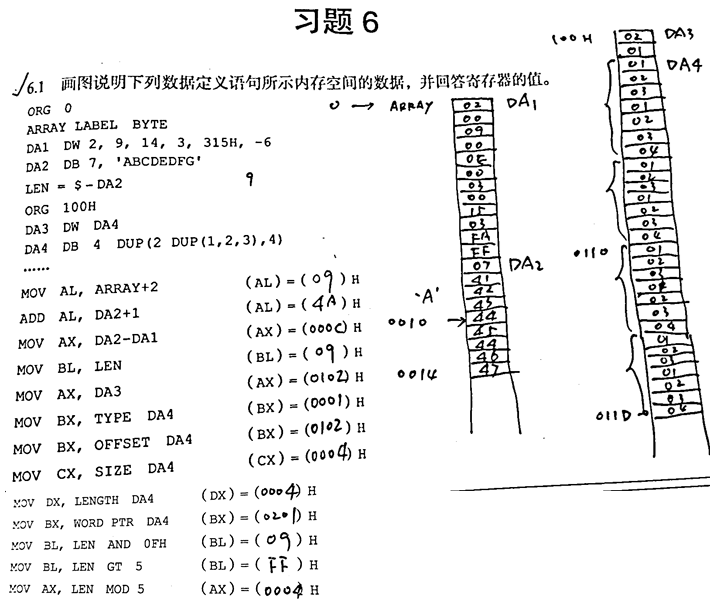 习题 6
√6.1 画图说明下列数据定义语句所示内存空间的数据，并回答寄存器的值。
ORG 0
ARRAY LABEL BYTE
DA1 DW 2, 9, 14, 3, 315H, -6
DA2 DB 7, 'ABCDEDFG'
LEN = $-DA2 9
ORG 100H
DA3 DW DA4
DA4 DB 4 DUP(2 DUP(1,2,3),4)
......
MOV AL, ARRAY+2 (AL)=(09)H
ADD AL, DA2+1 (AL)=(4A)H
MOV AX, DA2-DA1 (AX)=(000C)H
MOV BL, LEN (BL)=(09)H
MOV AX, DA3 (AX)=(0102)H
MOV BX, TYPE DA4 (BX)=(0001)H
MOV BX, OFFSET DA4 (BX)=(0102)H
MOV CX, SIZE DA4 (CX)=(0004)H
MOV DX, LENGTH DA4 (DX)=(0004)H
MOV BX, WORD PTR DA4 (BX)=(0201)H
MOV BL, LEN AND 0FH (BL)=(09)H
MOV BL, LEN GT 5 (BL)=(FF)H
MOV AX, LEN MOD 5 (AX)=(0004)H
0 → ARRAY 02 DA1
00
09
00
0E
00
03
00
15
03
FA
FF
07 DA2
'A' 41
42
43
0010 → 44
45
44
46
0014 47
100H 02 DA3
01
01 DA4
02
03
01
02
03
04
01
02
03
01
02
03
04
0110 01
02
03
02
03
04
01
02
03
01
02
03
011D → 04